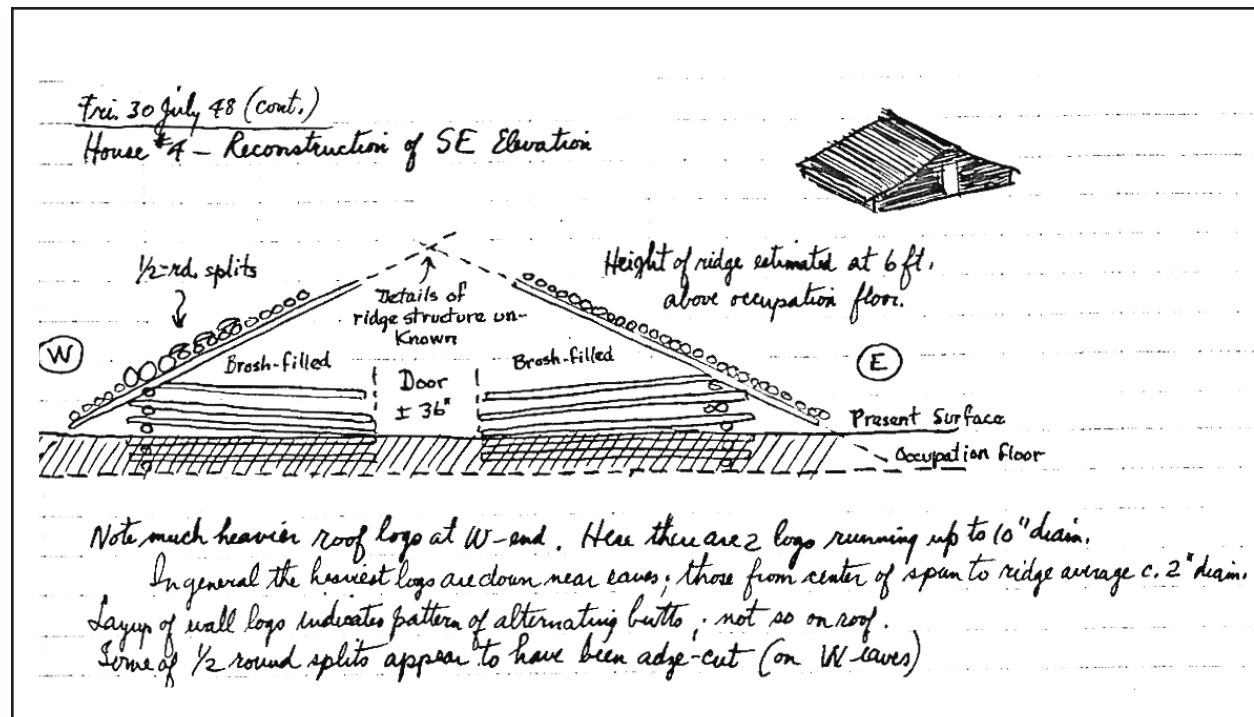 Fri. 30 July 48 (cont.)
House #4 – Reconstruction of SE Elevation
1/2-rd. splits
Details of
ridge structure un-
Known
Height of ridge estimated at 6 ft.
above occupation floor.
W
Brush-filled
Door
± 36"
Brush-filled
E
Present Surface
Occupation Floor
Note much heavier roof logs at W-end. Here there are 2 logs running up to 10" diam.
In general the heaviest logs are down near eaves; those from center of span to ridge average c. 2" diam.
Layup of wall logs indicates pattern of alternating butts; not so on roof.
Some of 1/2 round splits appear to have been adze-cut (on W eaves)